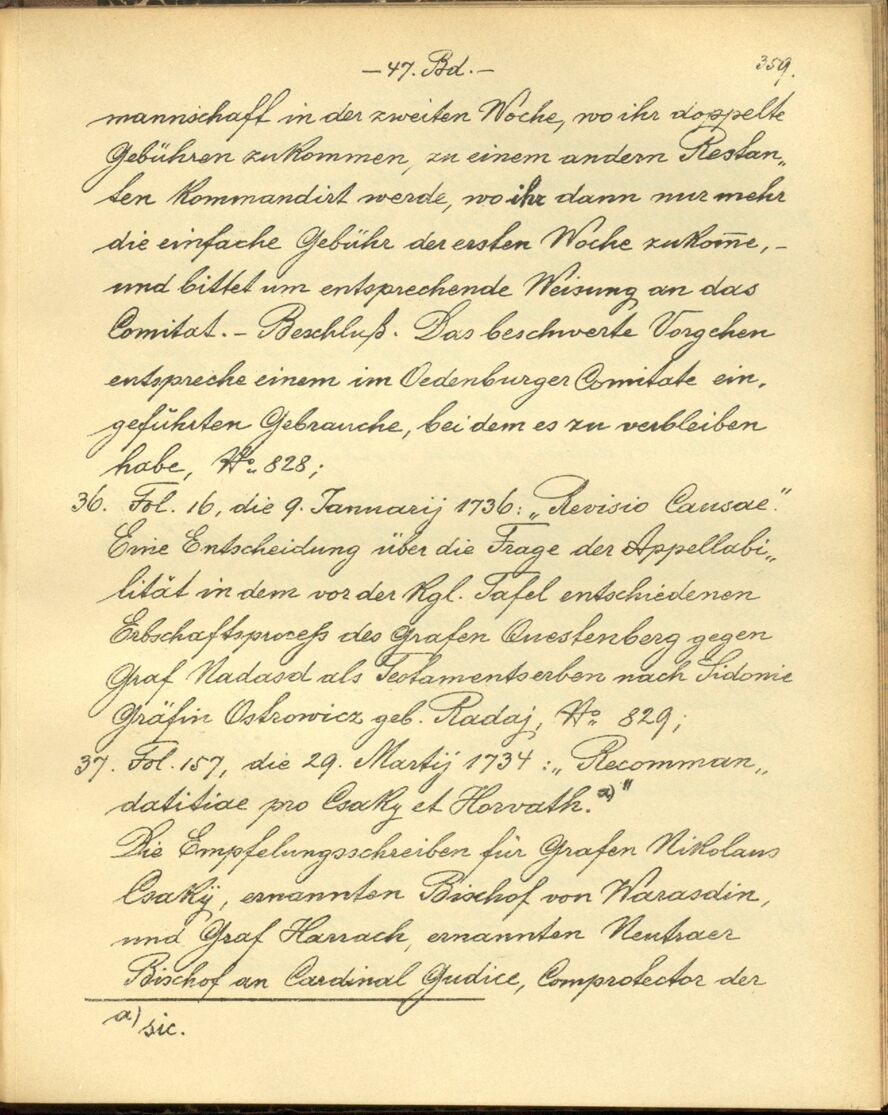 — 47. Bd. — 359.
mannschaft in der zweiten Woche, wo ihr doppelte
Gebühren zukommen, zu einem andern Restan„
ten kommandirt werde, wo ihr dann nur mehr
die einfache Gebühr der ersten Woche zukom̅e, –
und bittet um entsprechende Weisung an das
Comitat. – Beschluß. Das beschwerte Vorgehen
entspreche einem im Oedenburger Comitate ein„
geführten Gebrauche, bei dem es zu verbleiben
habe, No 828;
36. Fol. 16, die 9. Januarij 1736: „Revisio Causae."
Eine Entscheidung über die Frage der Appellabi„
lität in dem vor der kgl. Tafel entschiedenen
Erbschaftsprocess des Grafen Questenberg gegen
Graf Nadasd als Testamentserben nach Sidonie
Gräfin Ostrowicz geb. Radaj, No 829;
37. Fol. 157, die 29. Martij 1734: „Recomman„
datitiae pro Csaky et Horvath. a)"
Die Empfelungsschreiben für Grafen Nikolaus
Csakÿ, ernannten Bischof von Warasdin,
und Graf Harrach, ernannten Neutraer
Bischof an Cardinal Gudice, Comprotector der
a) sic.